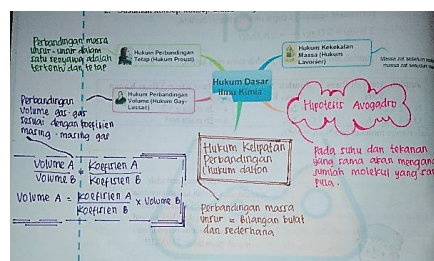 Perbandingan massa
unsur-unsur dalam
satu senyawa adalah
tertentu dan tetap
Hukum Perbandingan
Tetap (Hukum Proust)
Hukum Kekekalan
Massa (Hukum
Lavoiser)
Massa zat sebelum
massa zat sesudah
Hukum Dasar
Ilmu Kimia
Hukum Perbandingan
Volume (Hukum Gay-
Lussac)
Perbandingan
volume gas-gas
sesuai dengan koefisien
masing-masing gas
Volume A = Koefisien A
Volume B Koefisien B
Volume A = Koefisien A × Volume B
Koefisien B
Hukum Kelipatan
Perbandingan
(hukum dalton)
Perbandingan massa
unsur = Bilangan bulat
dan sederhana
Hipotesis Avogadro
Pada suhu dan tekanan
yang sama akan
jumlah molekul yang
pula.